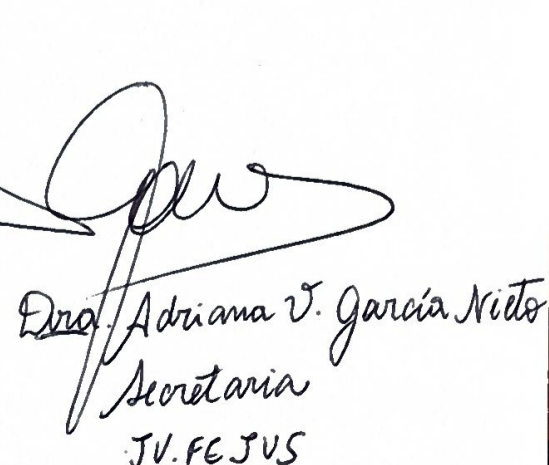 Dra. Adriana V. García Nieto
Secretaria
JV. FE JUS